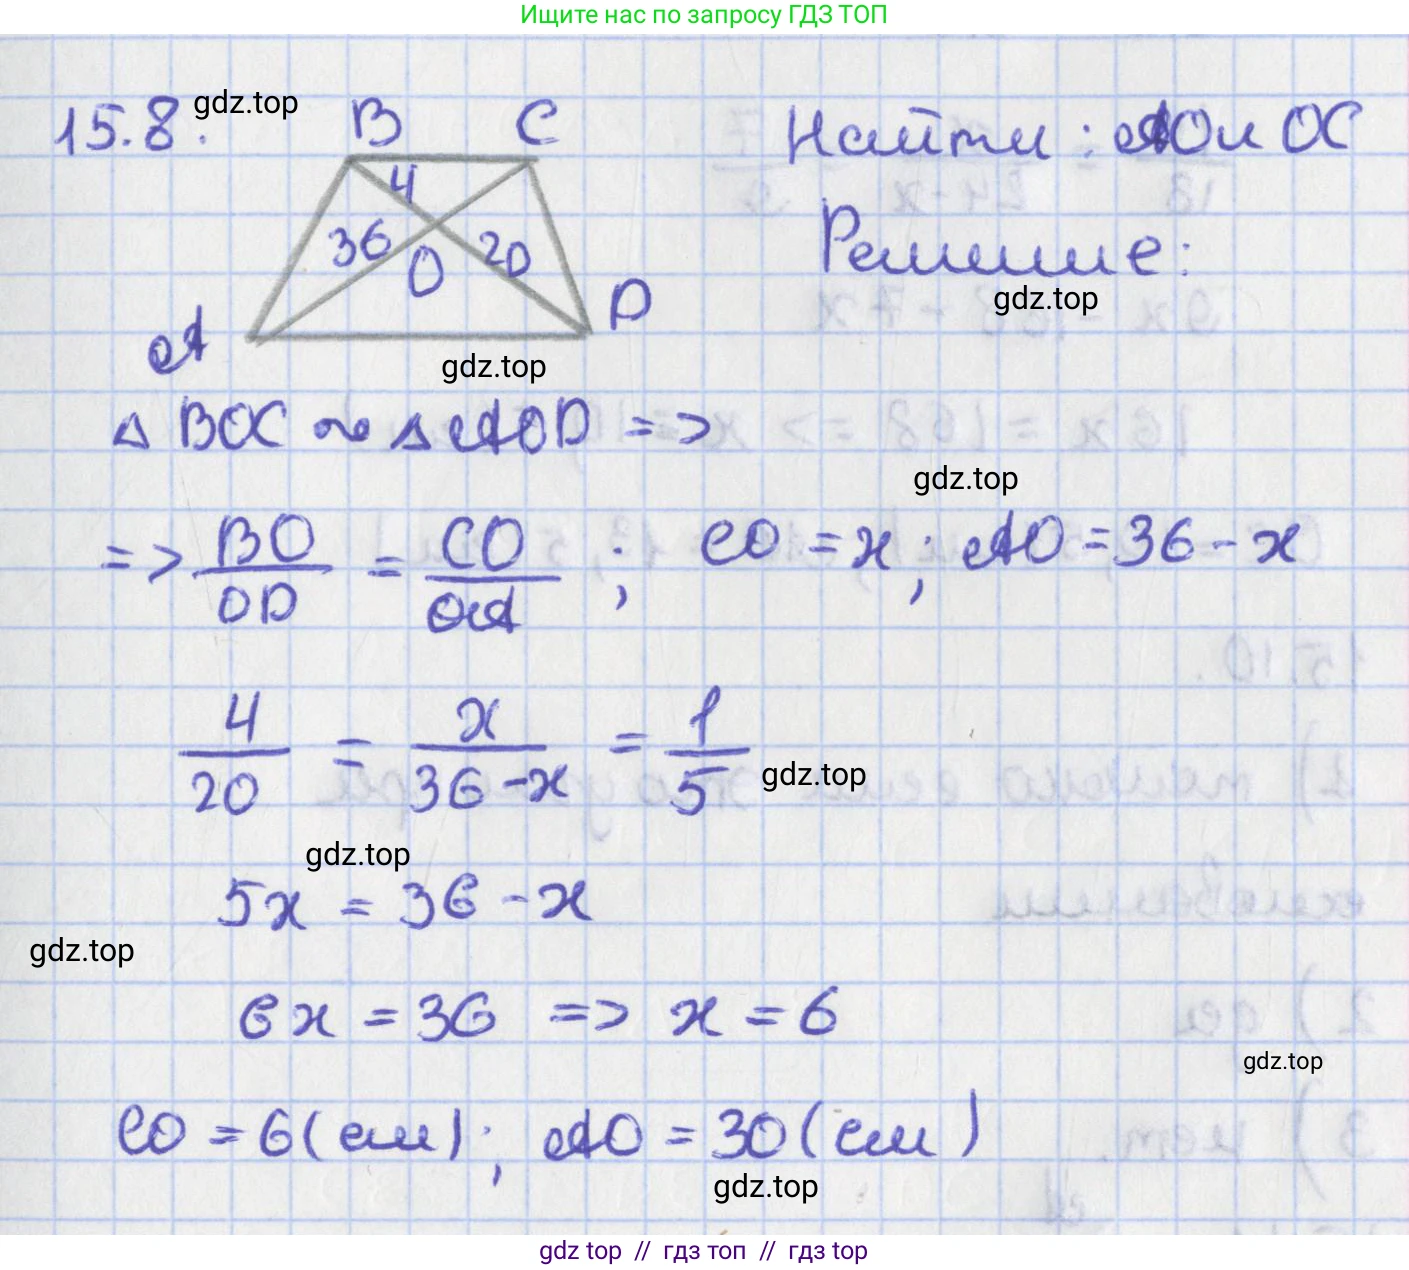 Ищите нас по запросу ГДЗ ТОП
15.8. gdz.top B C Найти: AO и OC
4
36 O 20 Решение:
A D gdz.top
gdz.top
△ BOC ~ △ AOD =>
gdz.top
=> BO/OD = CO/OA ; CO = x; AO = 36 - x
4/20 = x/36-x = 1/5 gdz.top
gdz.top
5x = 36 - x
gdz.top
6x = 36 => x = 6
gdz.top
CO = 6 (см); AO = 30 (см)
gdz.top
gdz top // гдз топ // гдз top